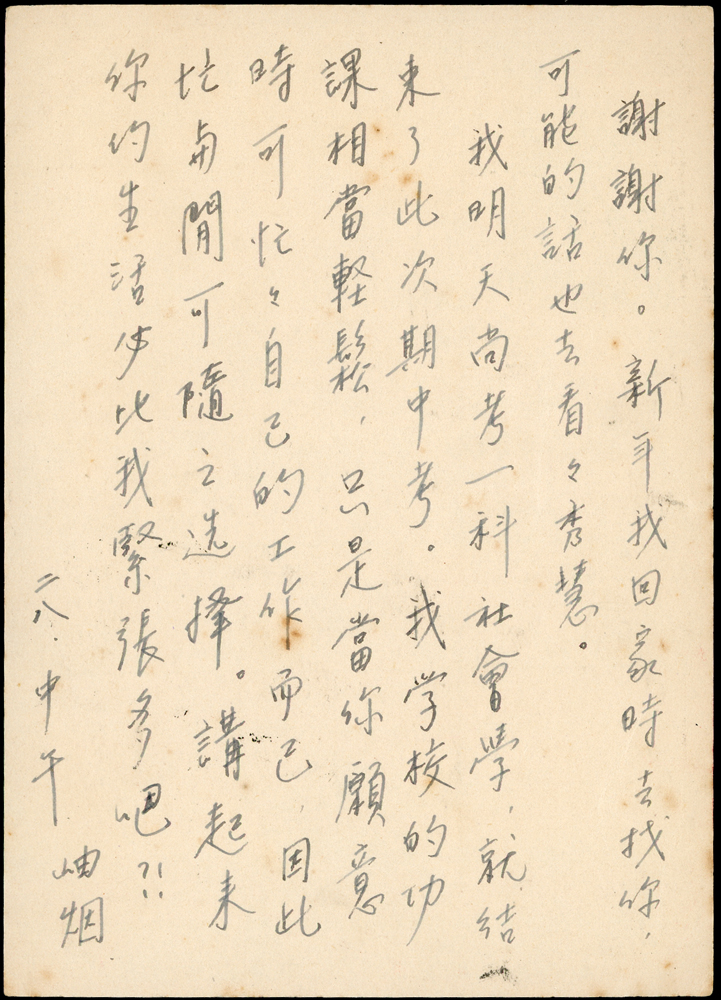 謝謝你。新年我回家時去找你，
可能的話也去看々秀慧。
我明天尚考一科社會學，就結
束了此次期中考。我学校的功
課相當軽鬆，只是當你願意
時可忙々自己的工作而已，因此
忙與閒可隨之选擇。講起来
你的生活步比我緊張多吧？！
二八．中午
岫烟